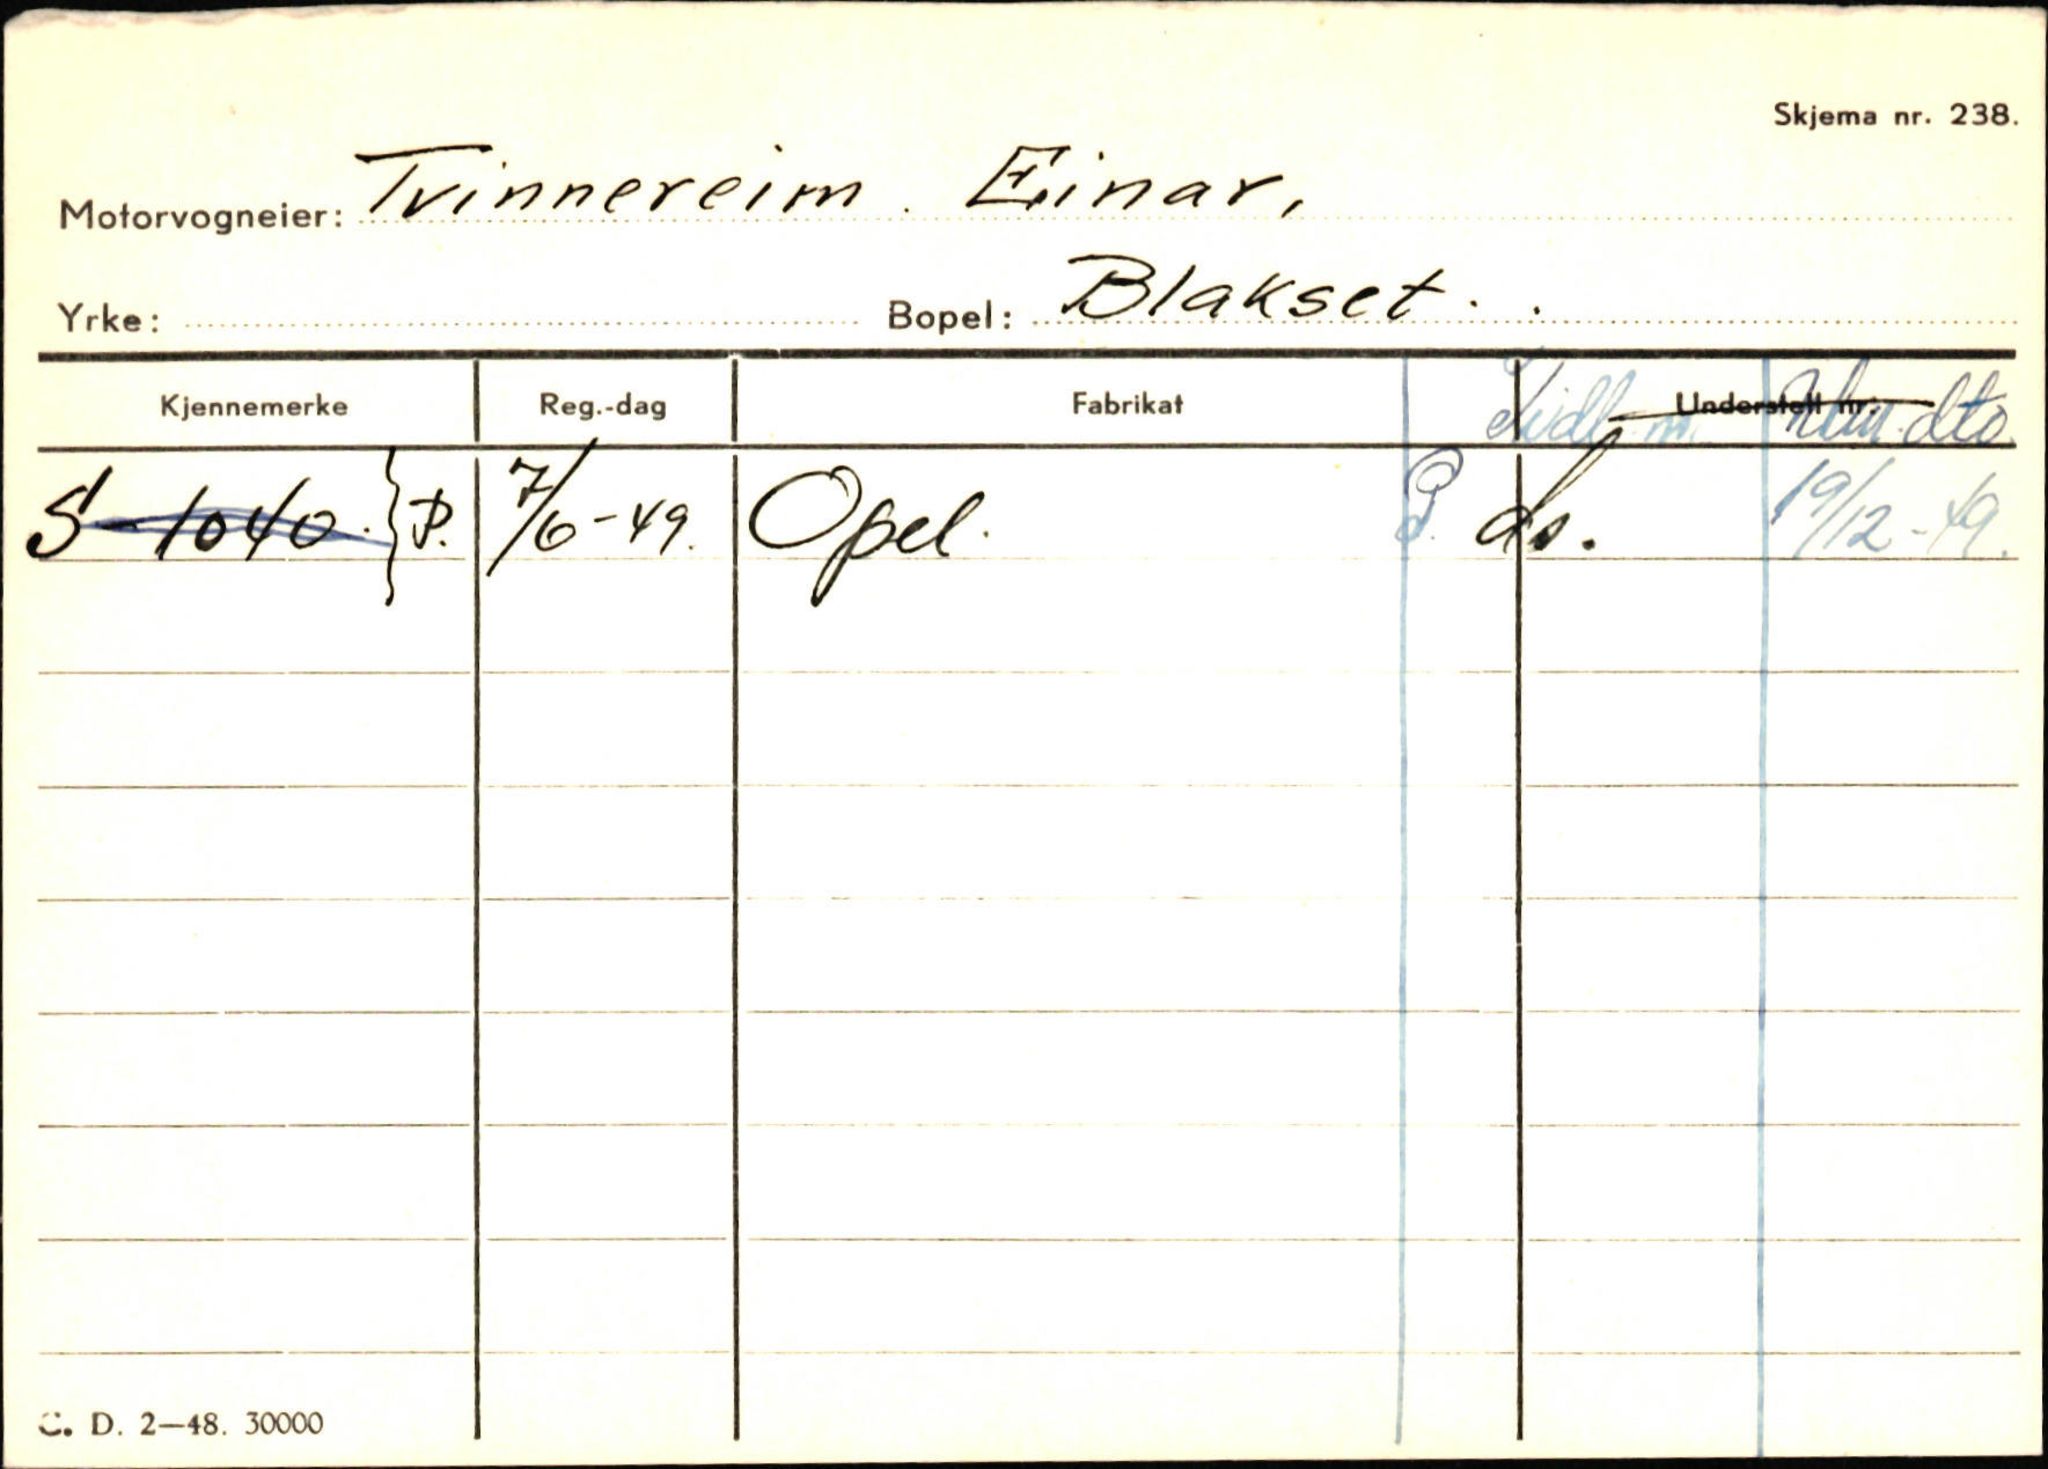 Skjema nr. 238.
Motorvogneier: Tvinnereim Einar,
Yrke: Bopel: Blakset.
Kjennemerke Reg.-dag Fabrikat Tidl. nr. Understell nr. Utm. dto
S-1040. P. 7/6-49. Opel. P. ds. 19/12-49.
C. D. 2—48. 30000